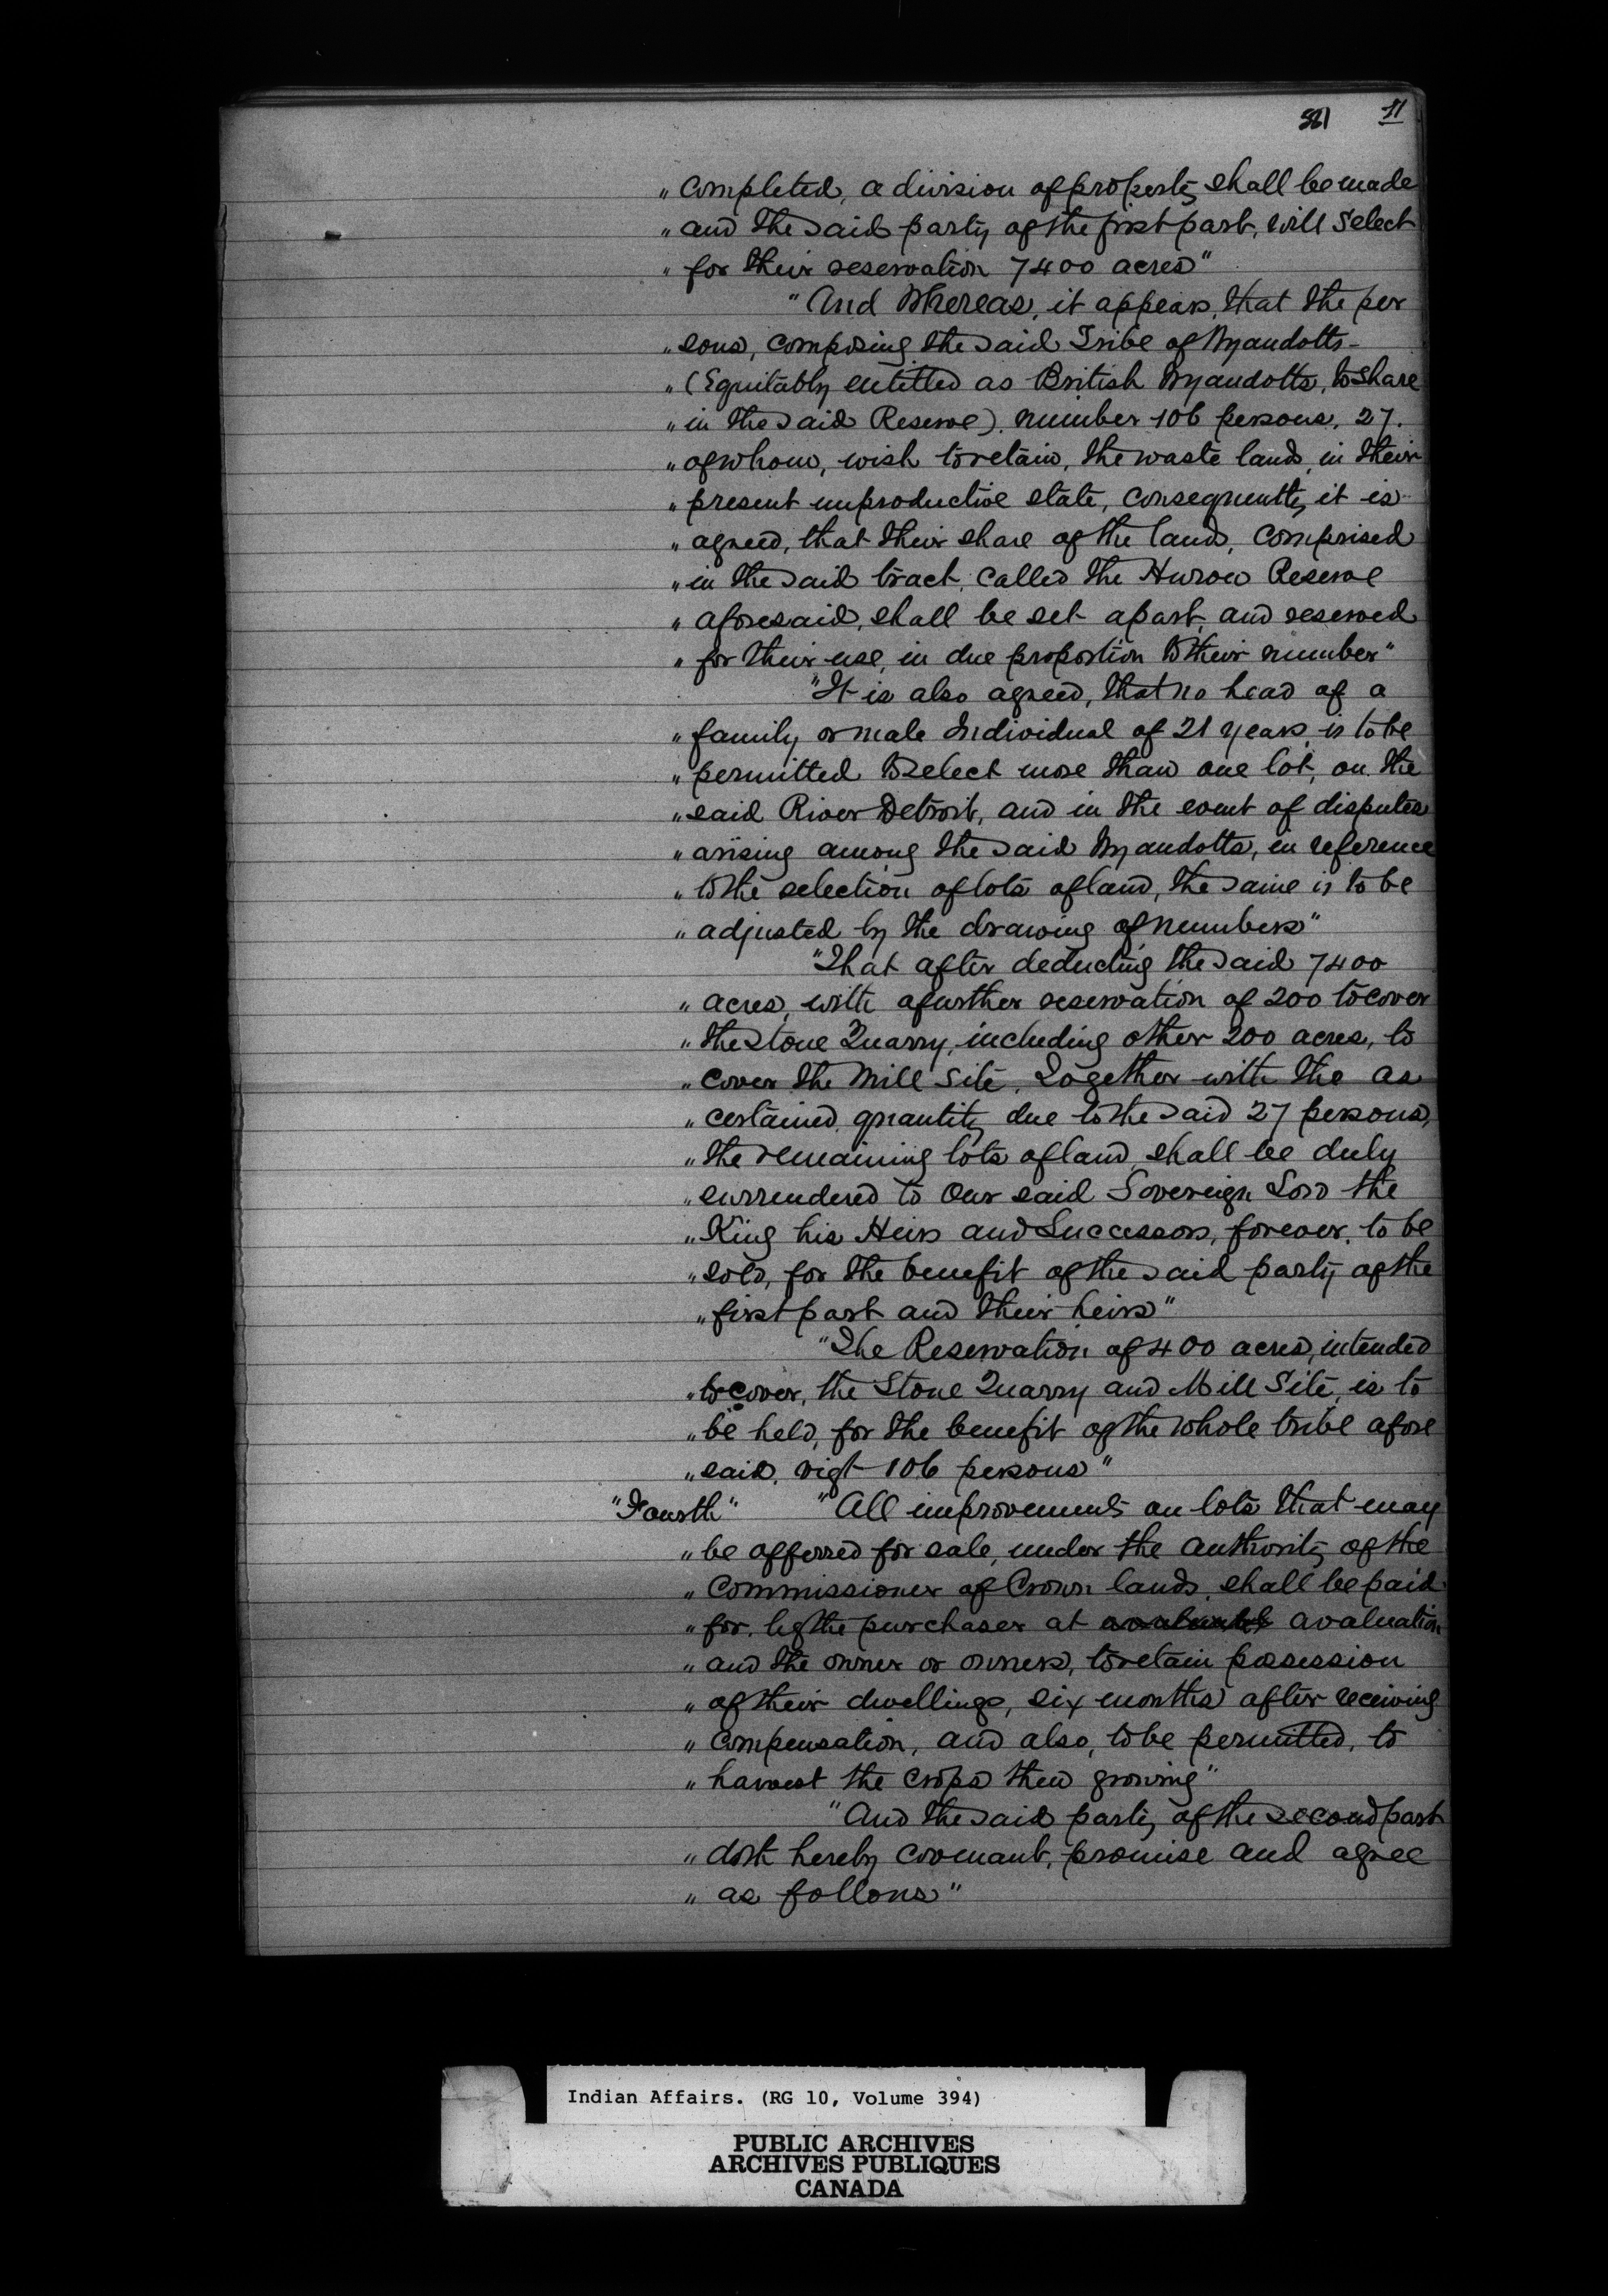 581 11
" completed, a division of property shall be made
" and the said party of the first part, will select
" for their reservation 7400 acres"
"And Whereas, it appears, that the per
" sons, composing the said Tribe of Wyandotts-
" (Equitably entitled as British Wyandotts, to share
" in the said Reserve). number 106 persons, 27.
" of whom, wish to retain, the waste lands, in their
" present unproductive state, consequently, it is
" agreed, that their share of the lands, comprised
" in the said tract, called the Huron Reserve
" aforesaid, shall be set apart, and reserved
" for their use, in due proportion to their number"
"It is also agreed, that no head of a
" family, or male Individual of 21 years, is to be
" permitted to select more than one lot, on the
" said River Detroit, and in the event of disputes
" arising among the said Wyandotts, in reference
" to the selection of lots of land, the same is to be
" adjusted by the drawing of numbers"
"That after deducting the said 7400
" acres, with a further reservation of 200 to cover
" the Stone Quarry, including other 200 acres, to
" cover the Mill Site, Together with the as
" certained, quantity due to the said 27 persons,
" the remaining lots of land, shall be duly
" surrendered to Our said Sovereign Lord the
" King his Heirs and Successors, forever, to be
" sold, for the benefit of the said party of the
" first part and their heirs"
"The Reservation of 400 acres, intended
" to cover, the Stone Quarry and Mill Site, is to
" be held, for the benefit of the whole tribe afore
" said, vizt 106 persons"
"Fourth" "All improvements on lots that may
" be offerred for sale, under the authority of the
" Commissioner of Crown lands, shall be paid
" for, by the purchaser at a valuation
" and the owner or owners, to retain possession
" of their dwellings, six months after receiving
" compensation, and also, to be permitted, to
" harvest the crops then growing"
"And the said party of the second part
" doth hereby covenant, promise and agree
" as follows"
Indian Affairs. (RG 10, Volume 394)
PUBLIC ARCHIVES
ARCHIVES PUBLIQUES
CANADA